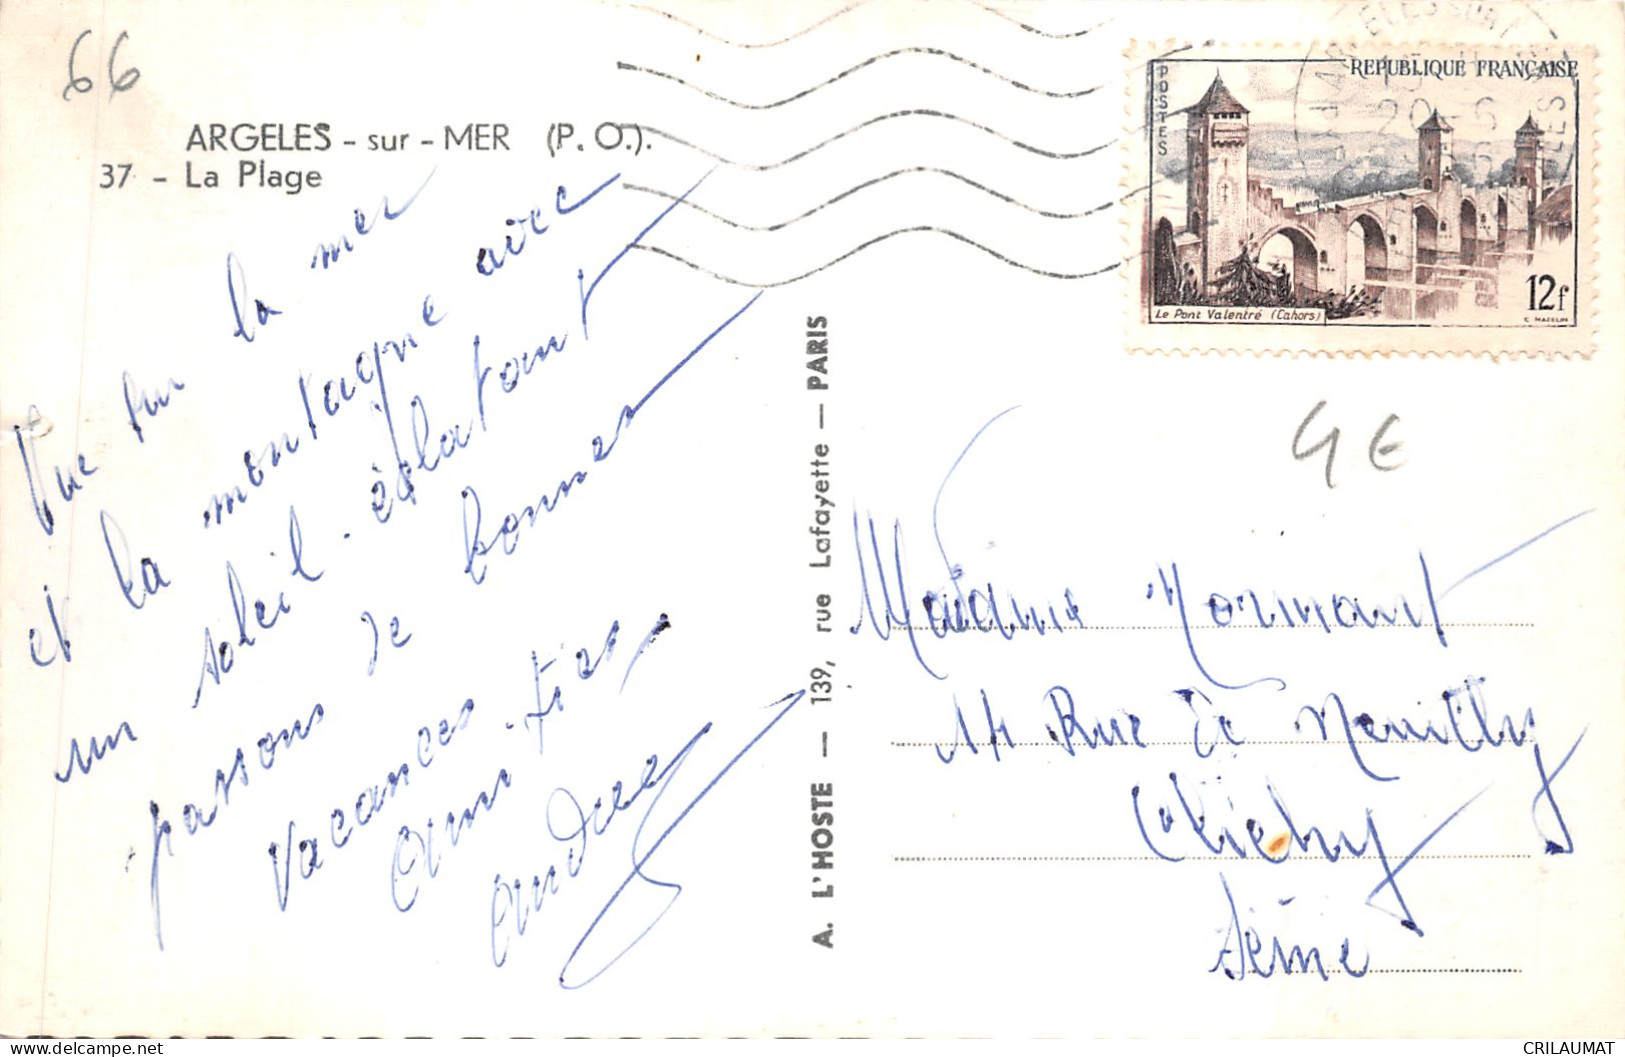 66
ARGELES - sur - MER (P.O.).
37 - La Plage
Vue sur la mer
et la montagne avec
un soleil éclatant
passons de bonnes
vacances
Amitiés
Andrée
A. L'HOSTE — 139, rue Lafayette — PARIS
POSTES
REPUBLIQUE FRANÇAISE
12f
Le Pont Valentré (Cahors)
C. MAZELIN
4€
Madame Normant
14 Rue de Neuilly
Clichy
Seine
CRILAUMAT